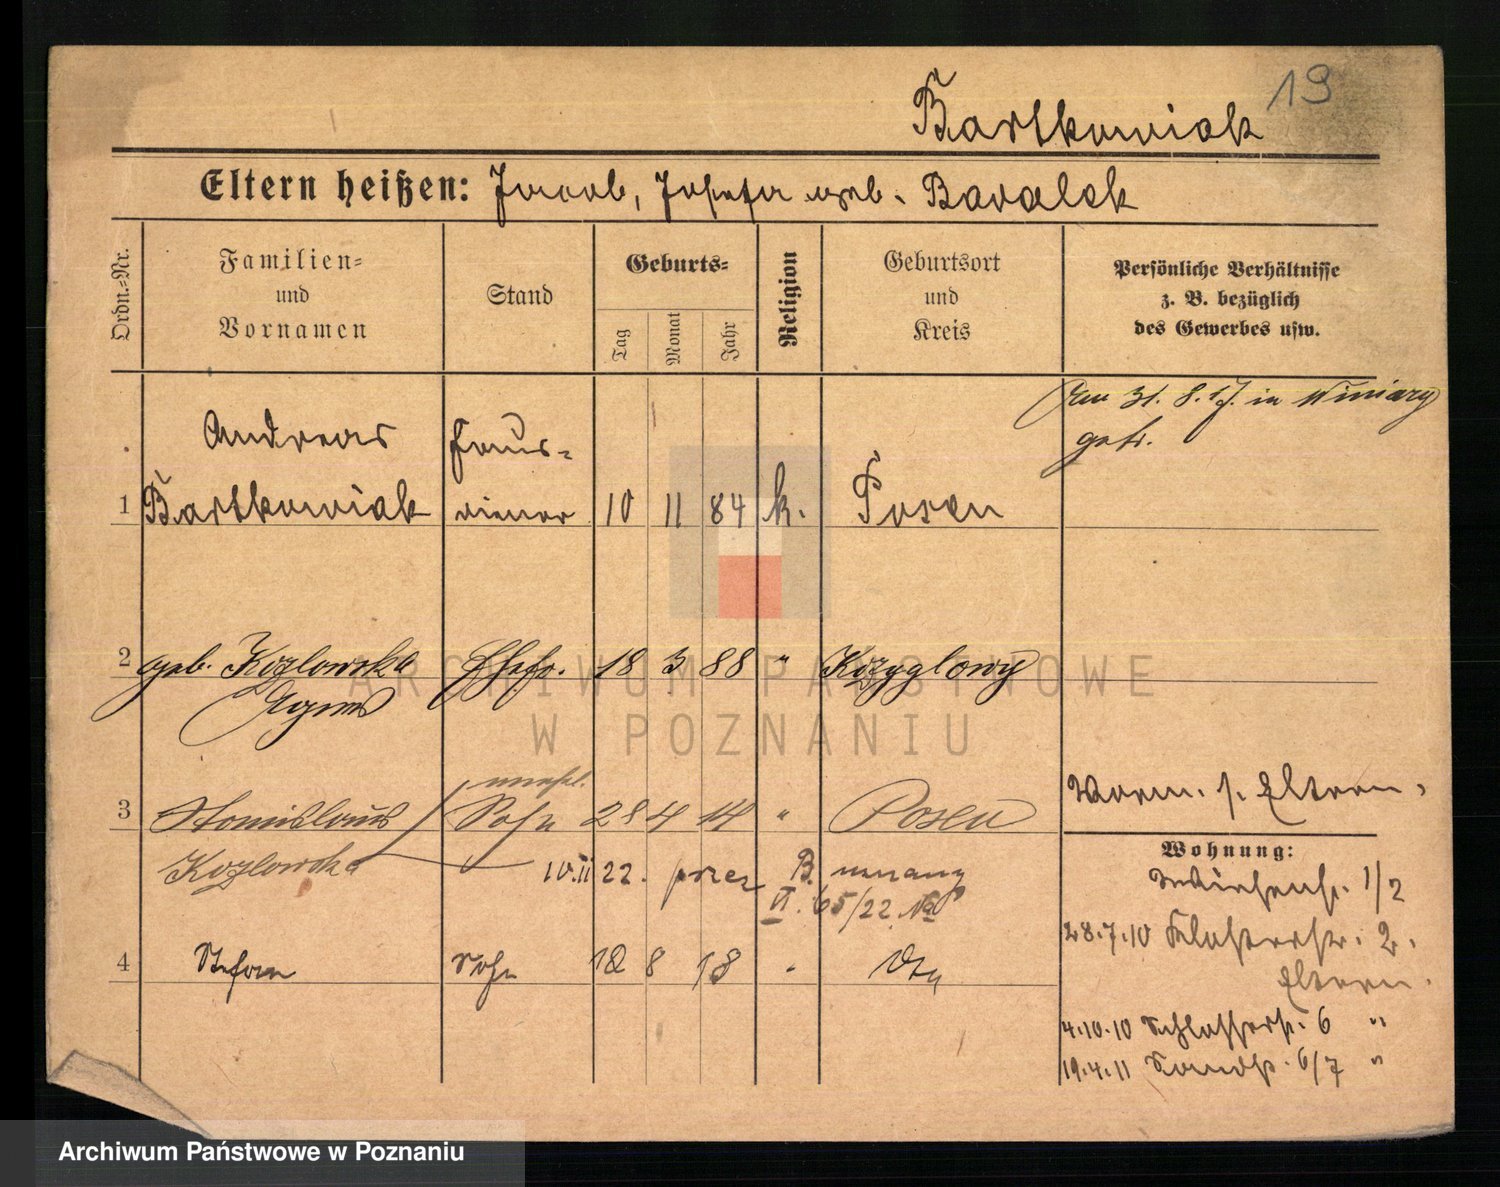 19
Bartkowiak
Eltern heißen: Jacob, Josefa geb. Bawalek
Ordn.-Nr.
Familien-
und
Vornamen
Stand
Geburts-
Tag
Monat
Jahr
Religion
Geburtsort
und
Kreis
Persönliche Verhältnisse
z. B. bezüglich
des Gewerbes usw.
Am 31. 8. 17. in Winiary
getr.
Andreas
Haus-
1 Bartkowiak diener 10 11 84 k. Posen
2 geb. Kozlowska Ehefr. 18 3 88 " Kozyglowy
Agnes
unehl.
3 Stanislaus Sohn 28 4 14 " Posen
Kozlowska 10.II 22. przez B. uznany
VI. 65/22
4 Stefan Sohn 18 8 18
Vorm. s. Eltern.
Wohnung:
1/2
28.7.10 Klosterstr. 2.
Eltern.
4.10.10 Schlosserstr. 6 "
19.4.11 Sandstr. 6/7 "
ARCHIWUM PAŃSTWOWE
W POZNANIU
Archiwum Państwowe w Poznaniu